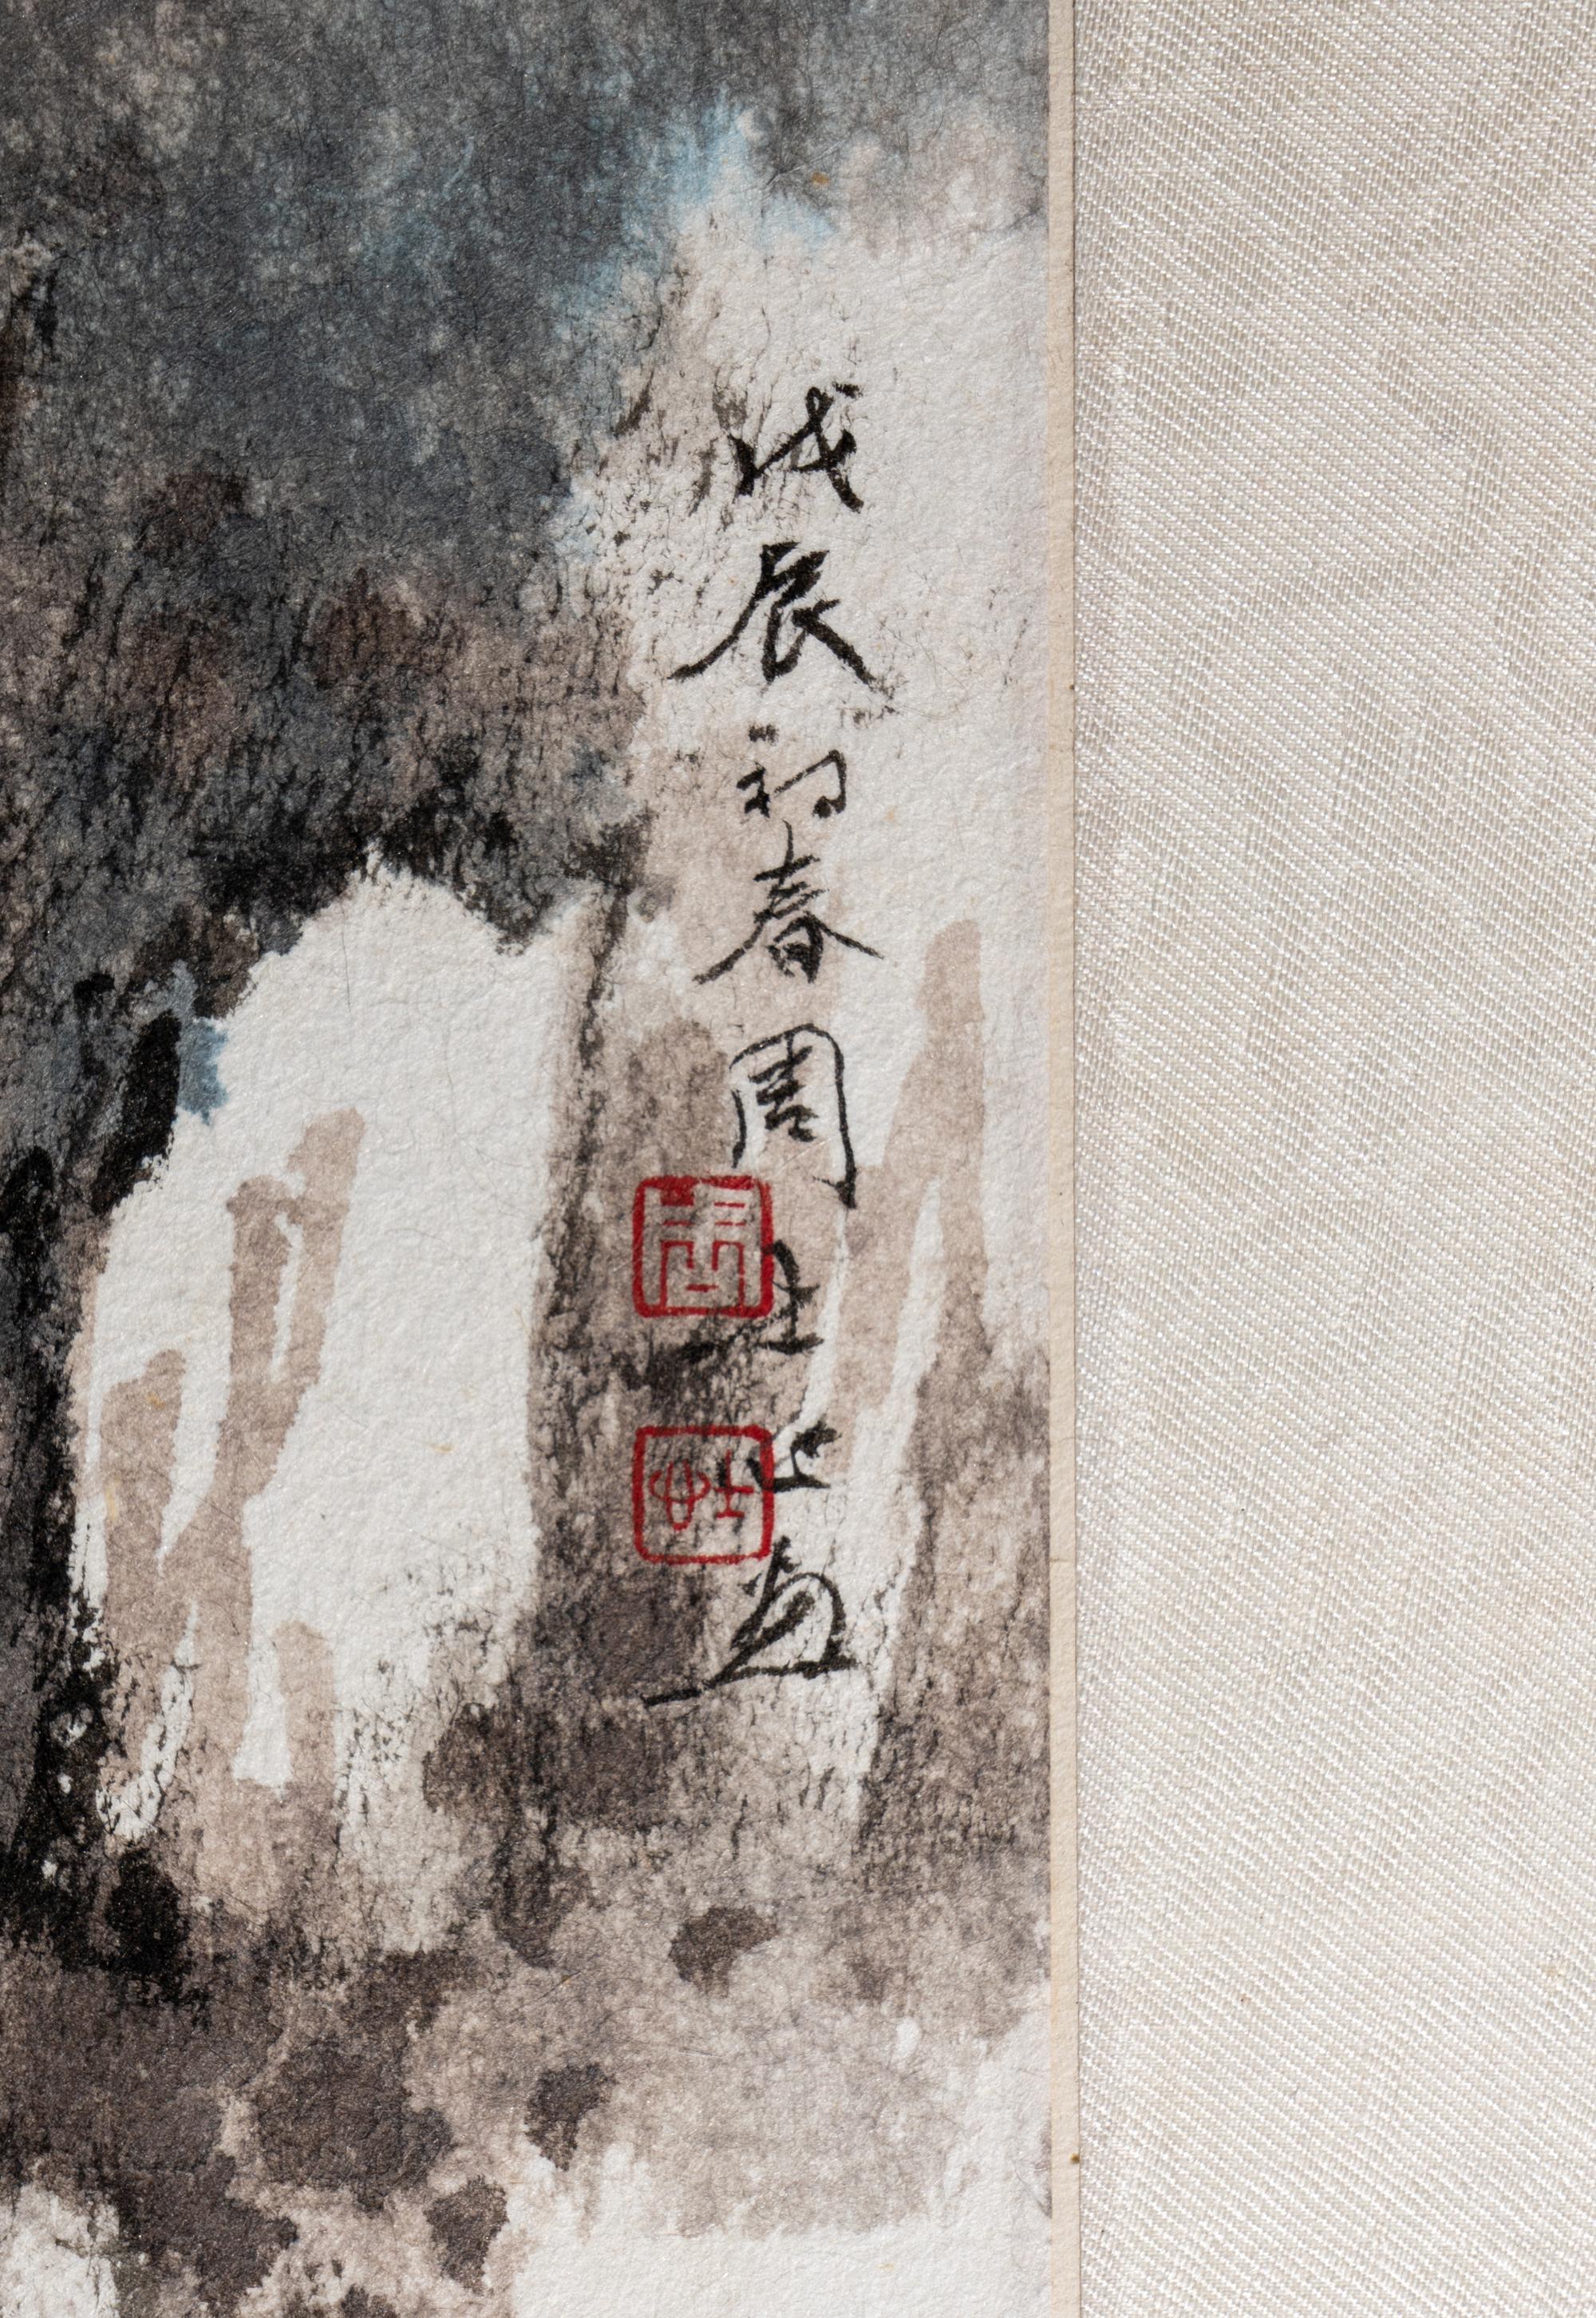 戊辰初春周士心畫
周
士心